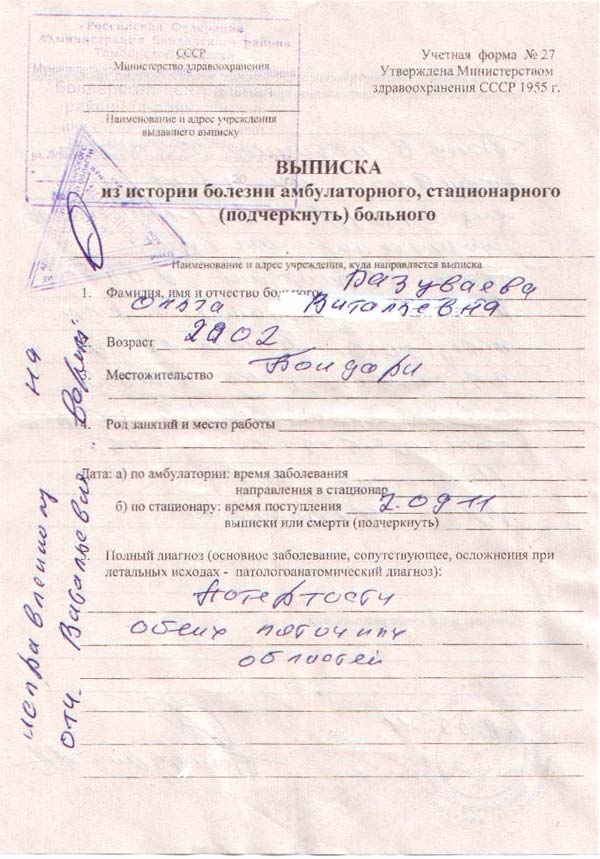 Российская Федерация
Администрация Бондарского района
СССР
Министерство здравоохранения
Учетная форма № 27
Утверждена Министерством
здравоохранения СССР 1955 г.
Наименование и адрес учреждения
выдавшего выписку
ВЫПИСКА
из истории болезни амбулаторного, стационарного
(подчеркнуть) больного
Наименование и адрес учреждения, куда направляется выписка
1. Фамилия, имя и отчество больного Разуваева
Ольга Витальевна
2. Возраст 2002
3. Местожительство Бондари
4. Род занятий и место работы
Дата: а) по амбулатории: время заболевания
направления в стационар
б) по стационару: время поступления 2.09 11
выписки или смерти (подчеркнуть)
5. Полный диагноз (основное заболевание, сопутствующее, осложнения при
летальных исходах - патологоанатомический диагноз):
Потертости
обеих пяточных
областей
исправленному на
отч. Витальевна верить